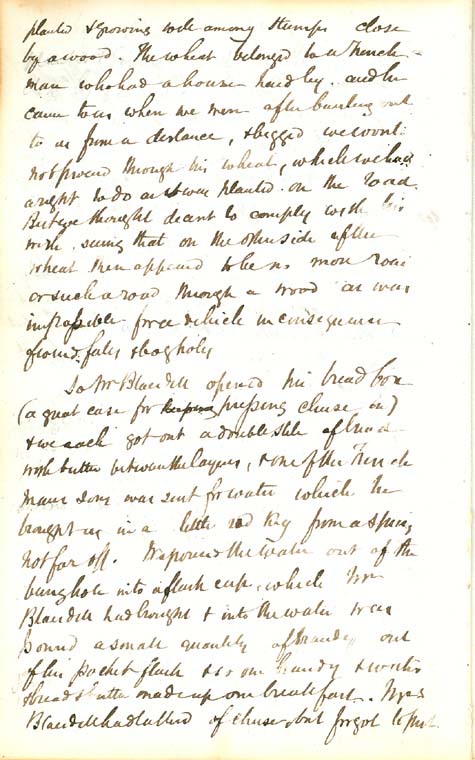 planted & growing wild among stumps close
by a wood. The wheat belonged to a French-
man who had a house hard by. and he
came to us when we were after bawling out
to us from a distance, & begged we would
not proceed through his wheat, which we had
a right to do as it was planted on the road.
But we thought decent to comply with his
wish, seeing that on the other side of the
wheat there appeared to be no more road
or such a road through a wood as was
impassible for a vehicle in consequence
of round. falls & bog holes
So Mr Blaedell opened his bread box
(a great case for keeping pressing cheese in)
& we each got out a double slice of bread
with butter between the layers, & one of the French
mans sons was sent for water which he
brought us in a little red Keg from a spring
not far off. We poured the water out of the
bunghole into a flask cup, which Mr
Blaedell had brought & into the water was
poured a small quantity of brandy out
of his pocket flask & so our brandy & water
& bread & butter made up our breakfast. Mrs
Blaedell had talked of cheese, but forgot to put